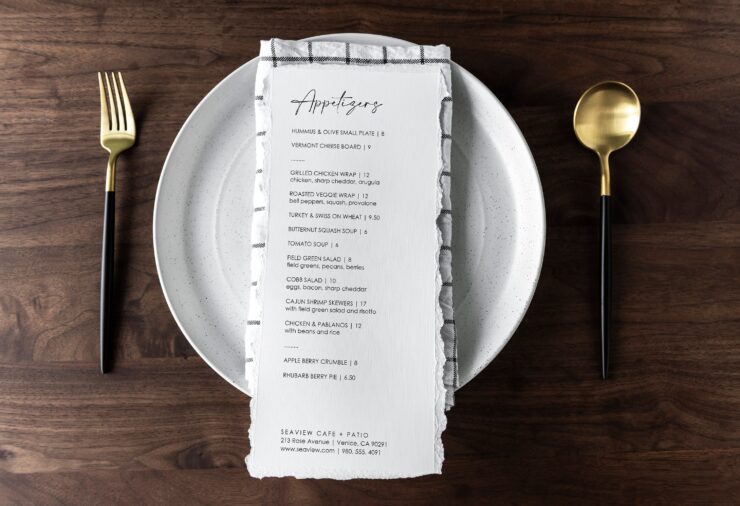 Appetizers
HUMMUS & OLIVE SMALL PLATE | 8
VERMONT CHEESE BOARD | 9
-------
GRILLED CHICKEN WRAP | 12
chicken, sharp cheddar, arugula
ROASTED VEGGIE WRAP | 12
bell peppers, squash, provolone
TURKEY & SWISS ON WHEAT | 9.50
BUTTERNUT SQUASH SOUP | 6
TOMATO SOUP | 6
FIELD GREEN SALAD | 8
field greens, pecans, berries
COBB SALAD | 10
eggs, bacon, sharp cheddar
CAJUN SHRIMP SKEWERS | 17
with field green salad and risotto
CHICKEN & PABLANOS | 12
with beans and rice
-------
APPLE BERRY CRUMBLE | 8
RHUBARB BERRY PIE | 6.50
SEAVIEW CAFE + PATIO
213 Rose Avenue | Venice, CA 90291
www.seaview.com | 980. 555. 4091